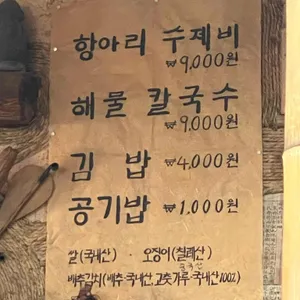 항아리 수제비
₩9,000원
해물 칼국수
₩9,000원
김 밥 ₩4,000원
공기밥 ₩1,000원
쌀(국내산) · 오징어(칠레산)
배추김치(배추·국내산, 고춧가루·국내산100%)